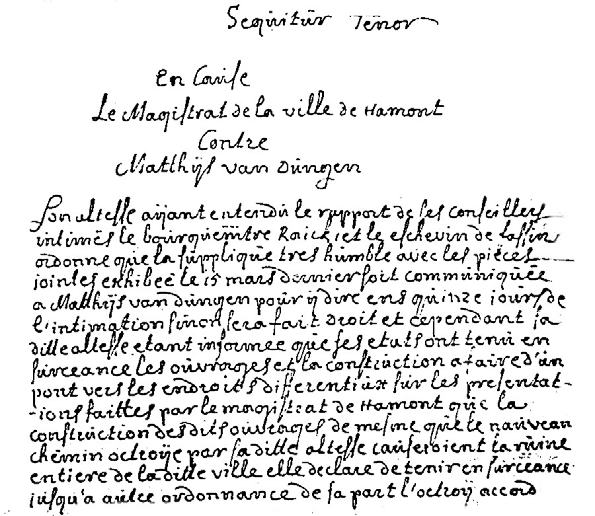 Sequitur Tenor
En Cause
Le Magistrat de la ville de Hamont
Contre
Matthijs van Dungen
Son altesse aijant entendu le rapport de ses conseillers
intimes le bourguemtre Raick et le eschevin de
ordonne que la supplique tres humble avec les pieces
jointes exhibeé le 15 mars dernier soit communiqueé
a Matthijs van dungen pour ÿ dire ens quinze jours de
l'intimation sinon sera fait droit et cependant sa
ditte altesse etant informeé que ses etats ont tenu en
surceance les ouvrages et la construction a faire d'un
pont vers les endroits differentiux sur les presentat-
-ions faittes par le magistrat de Hamont que la
construction desdits ouvrages de mesme que le nauveau
chemin octroÿe par sa ditte altesse causeroient la ruine
entiere de la ditte ville elle declare de tenir en surceance
jusqu'a autre ordonnance de sa part l'octroÿ accord